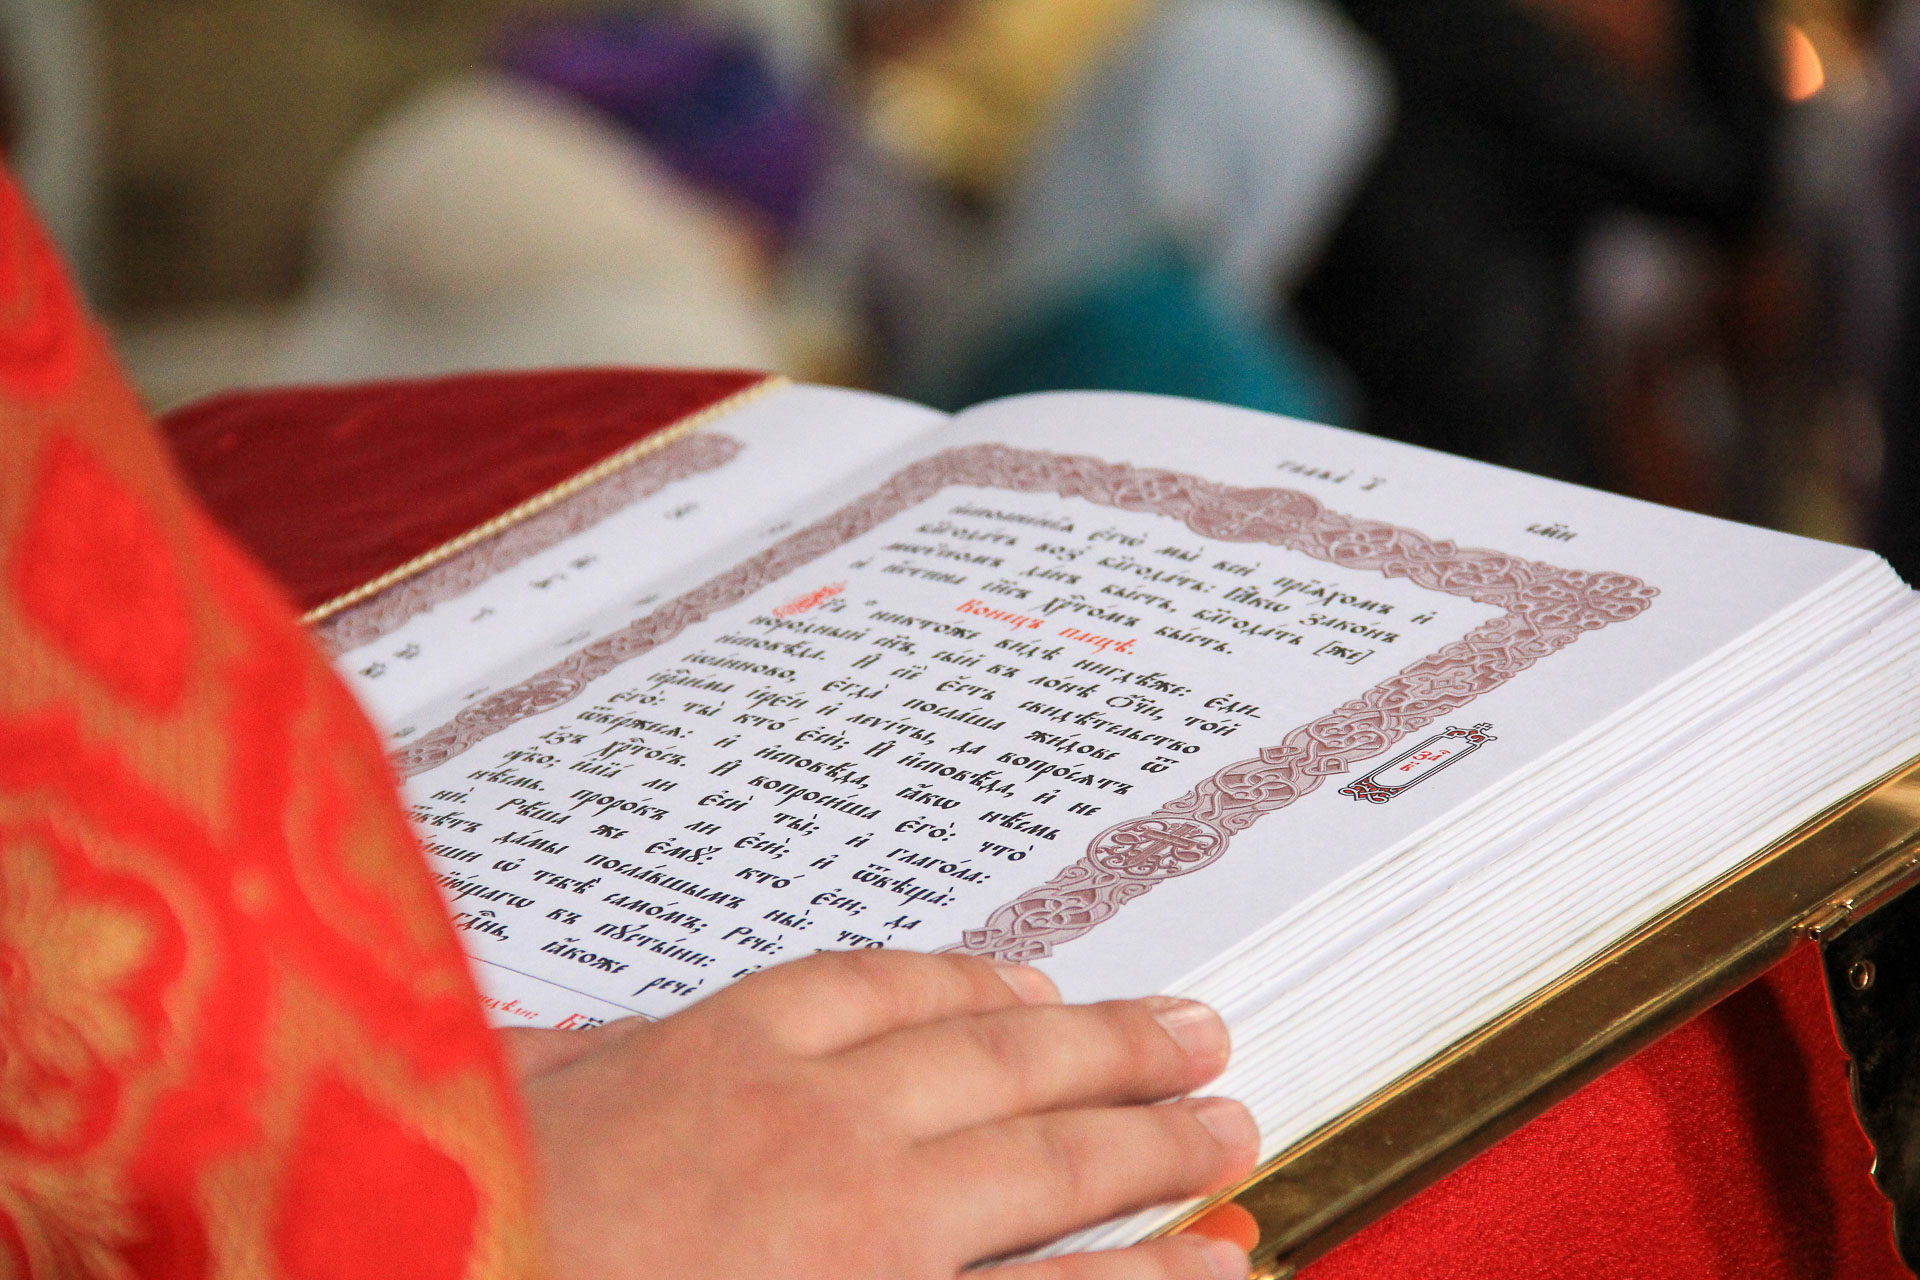 глава̀ а҃
сл҃и
и҆сполне́нїѧ є҆гѡ̀ мы̀ всѝ прїѧ́хомъ и҆
бл҃года́ть воз̾ бл҃года́ть: ꙗ҆́кѡ зако́нъ
мѡѷсе́омъ да́нъ бы́сть, бл҃года́ть [же]
и҆ и҆́стина і҆и҃съ хрⷭ҇то́мъ бы́сть.
Коне́цъ па́сцѣ.
Бг҃а никто́же ви́дѣ нигдѣ́же: є҆ди-
норо́дный сн҃ъ, сы́й въ ло́нѣ ѻ҆́ч҃и, то́й
и҆сповѣ́да. И҆ сїѐ є҆́сть свидѣ́тельство
і҆ѡа́нново, є҆гда̀ посла́ша жи́дове ѿ
і҆ерⷭ҇ли́ма і҆ере́и и҆ леѵі́ты, да вопро́сѧтъ
є҆го̀: ты̀ кто̀ є҆сѝ; И҆ и҆сповѣ́да, и҆ не
ѿве́ржесѧ: и҆ и҆сповѣ́да, ꙗ҆́кѡ нѣ́смь
а҆́зъ хрⷭ҇то́съ. И҆ вопроси́ша є҆го̀: что̀
ᲂу҆̀бо; и҆лїа́ ли є҆сѝ ты̀; и҆ глаго́ла:
нѣ́смь. проро́къ ли є҆сѝ; и҆ ѿвѣща̀:
нѝ. Рѣ́ша же є҆мꙋ̀: кто̀ є҆сѝ; да
ѿвѣ́тъ да́мы посла́вшымъ ны̀: что̀
ѡ҆ тебѣ̀ само́мъ; Речѐ:
въ пꙋсты́ни: и҆
гдⷭ҇нь, ꙗ҆́коже речѐ